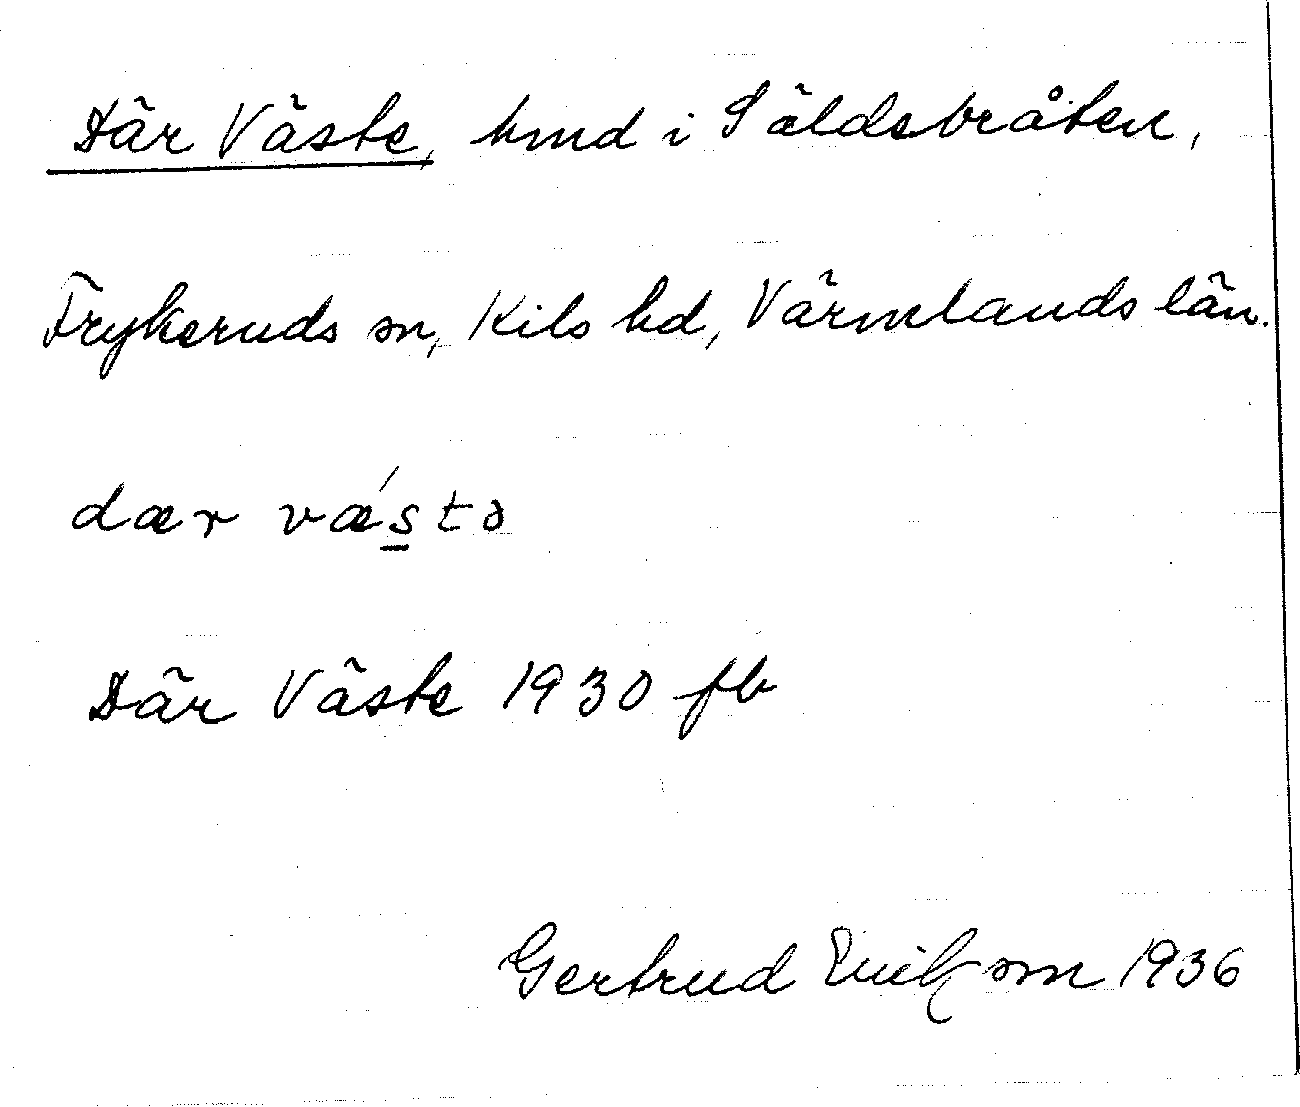 Där Väste, hmd i Säldebråten,
Frykeruds sn, Kils hd, Värmlands län.
dær væ´stə
Där Väste 1930 fb
Gertrud Ericson 1936